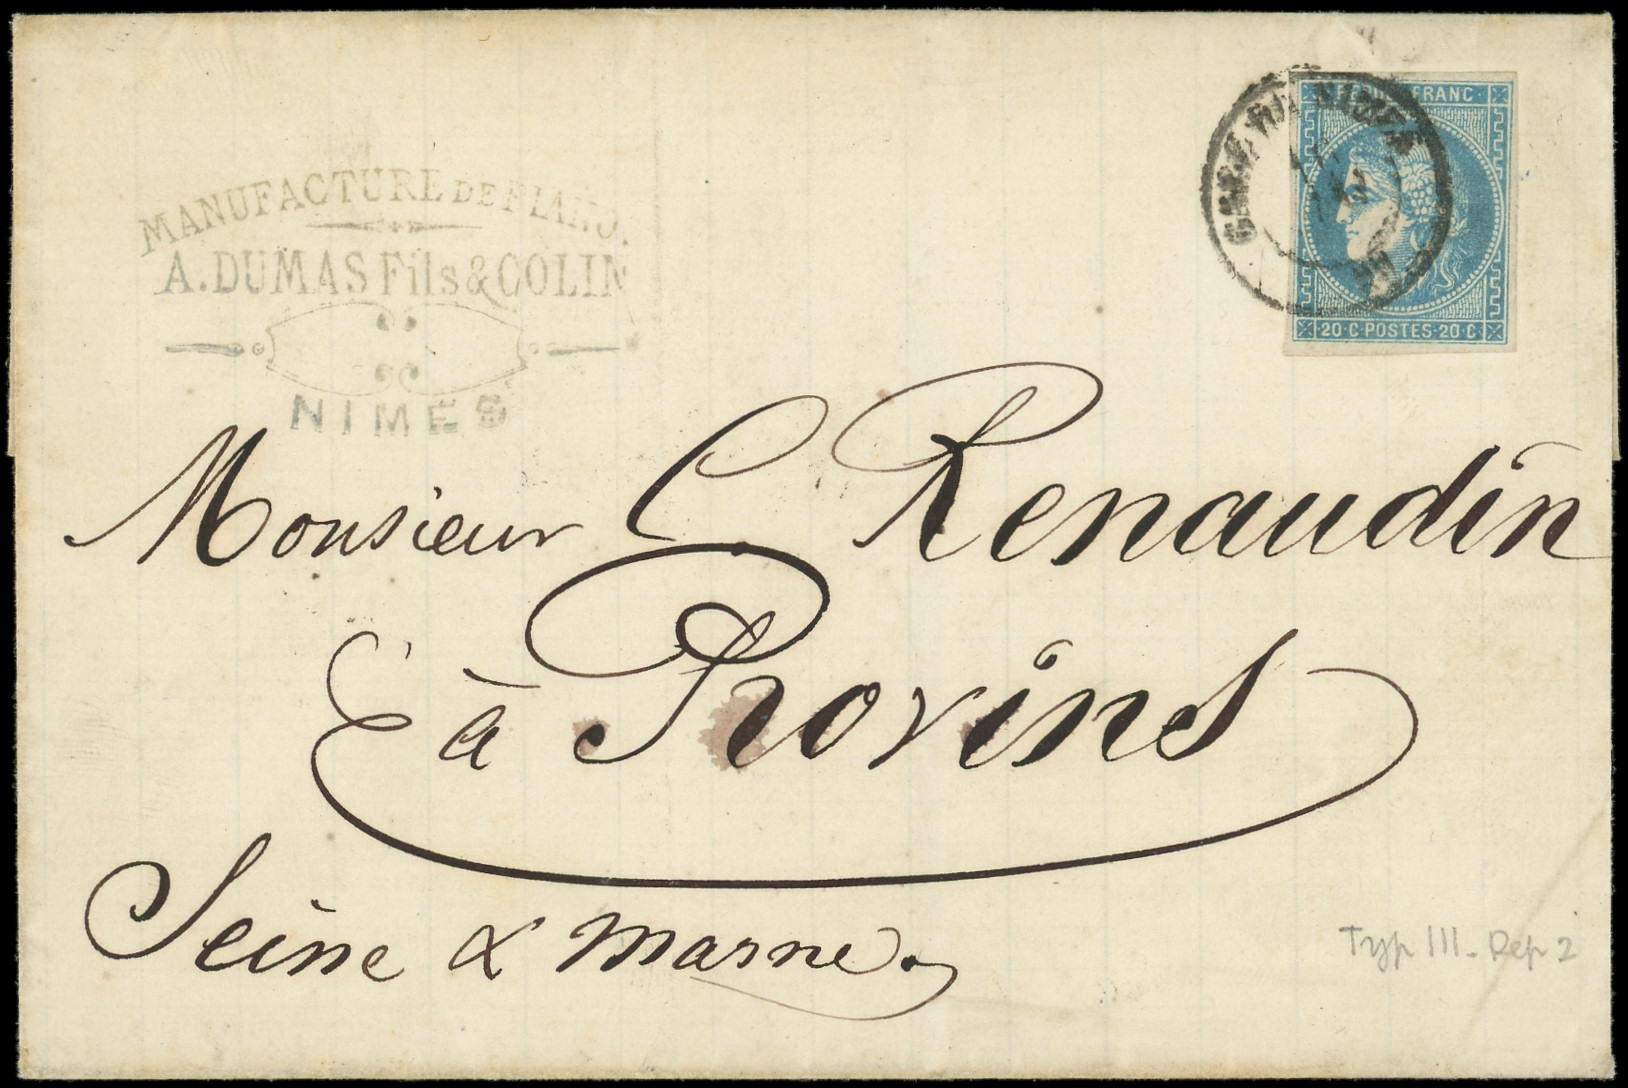 MANUFACTURE DE PIANO.
A. DUMAS Fils & COLIN
NIMES
FRANC
20 C · POSTES · 20 C
Monsieur C. Renaudin
à Provins
Seine & Marne.
Typ III - Rep 2